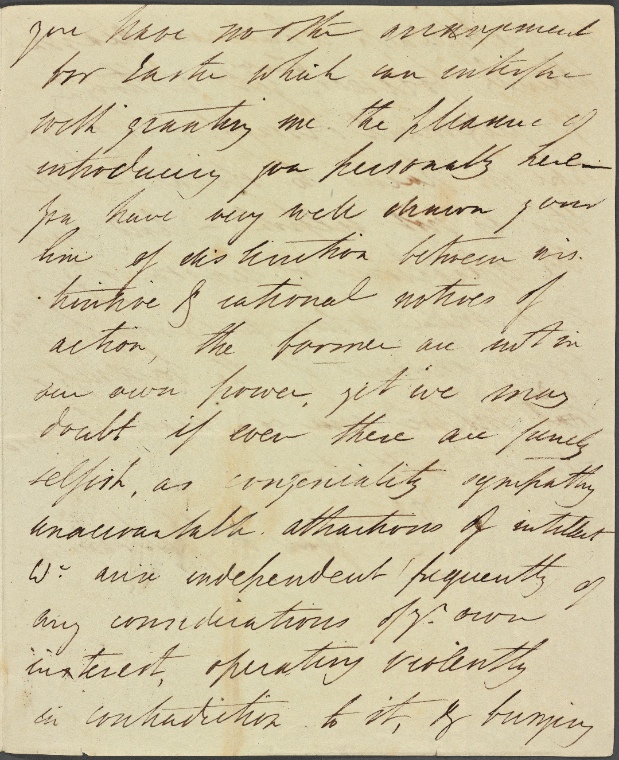 you have no other arrangement
for Easter which can interfere
with granting me the pleasure of
introducing you personally here—
you have very well drawn your
line of distinction between ins-
tinctive & rational motives of
action, the former are not in
our own power, yet we may
doubt if even these are purely
selfish, as congeniality sympathy
unaccountable attractions of intellect
Wh. arise independent frequently of
any considerations of yr. own
interest, operating violently
in contradiction to it, & bursting